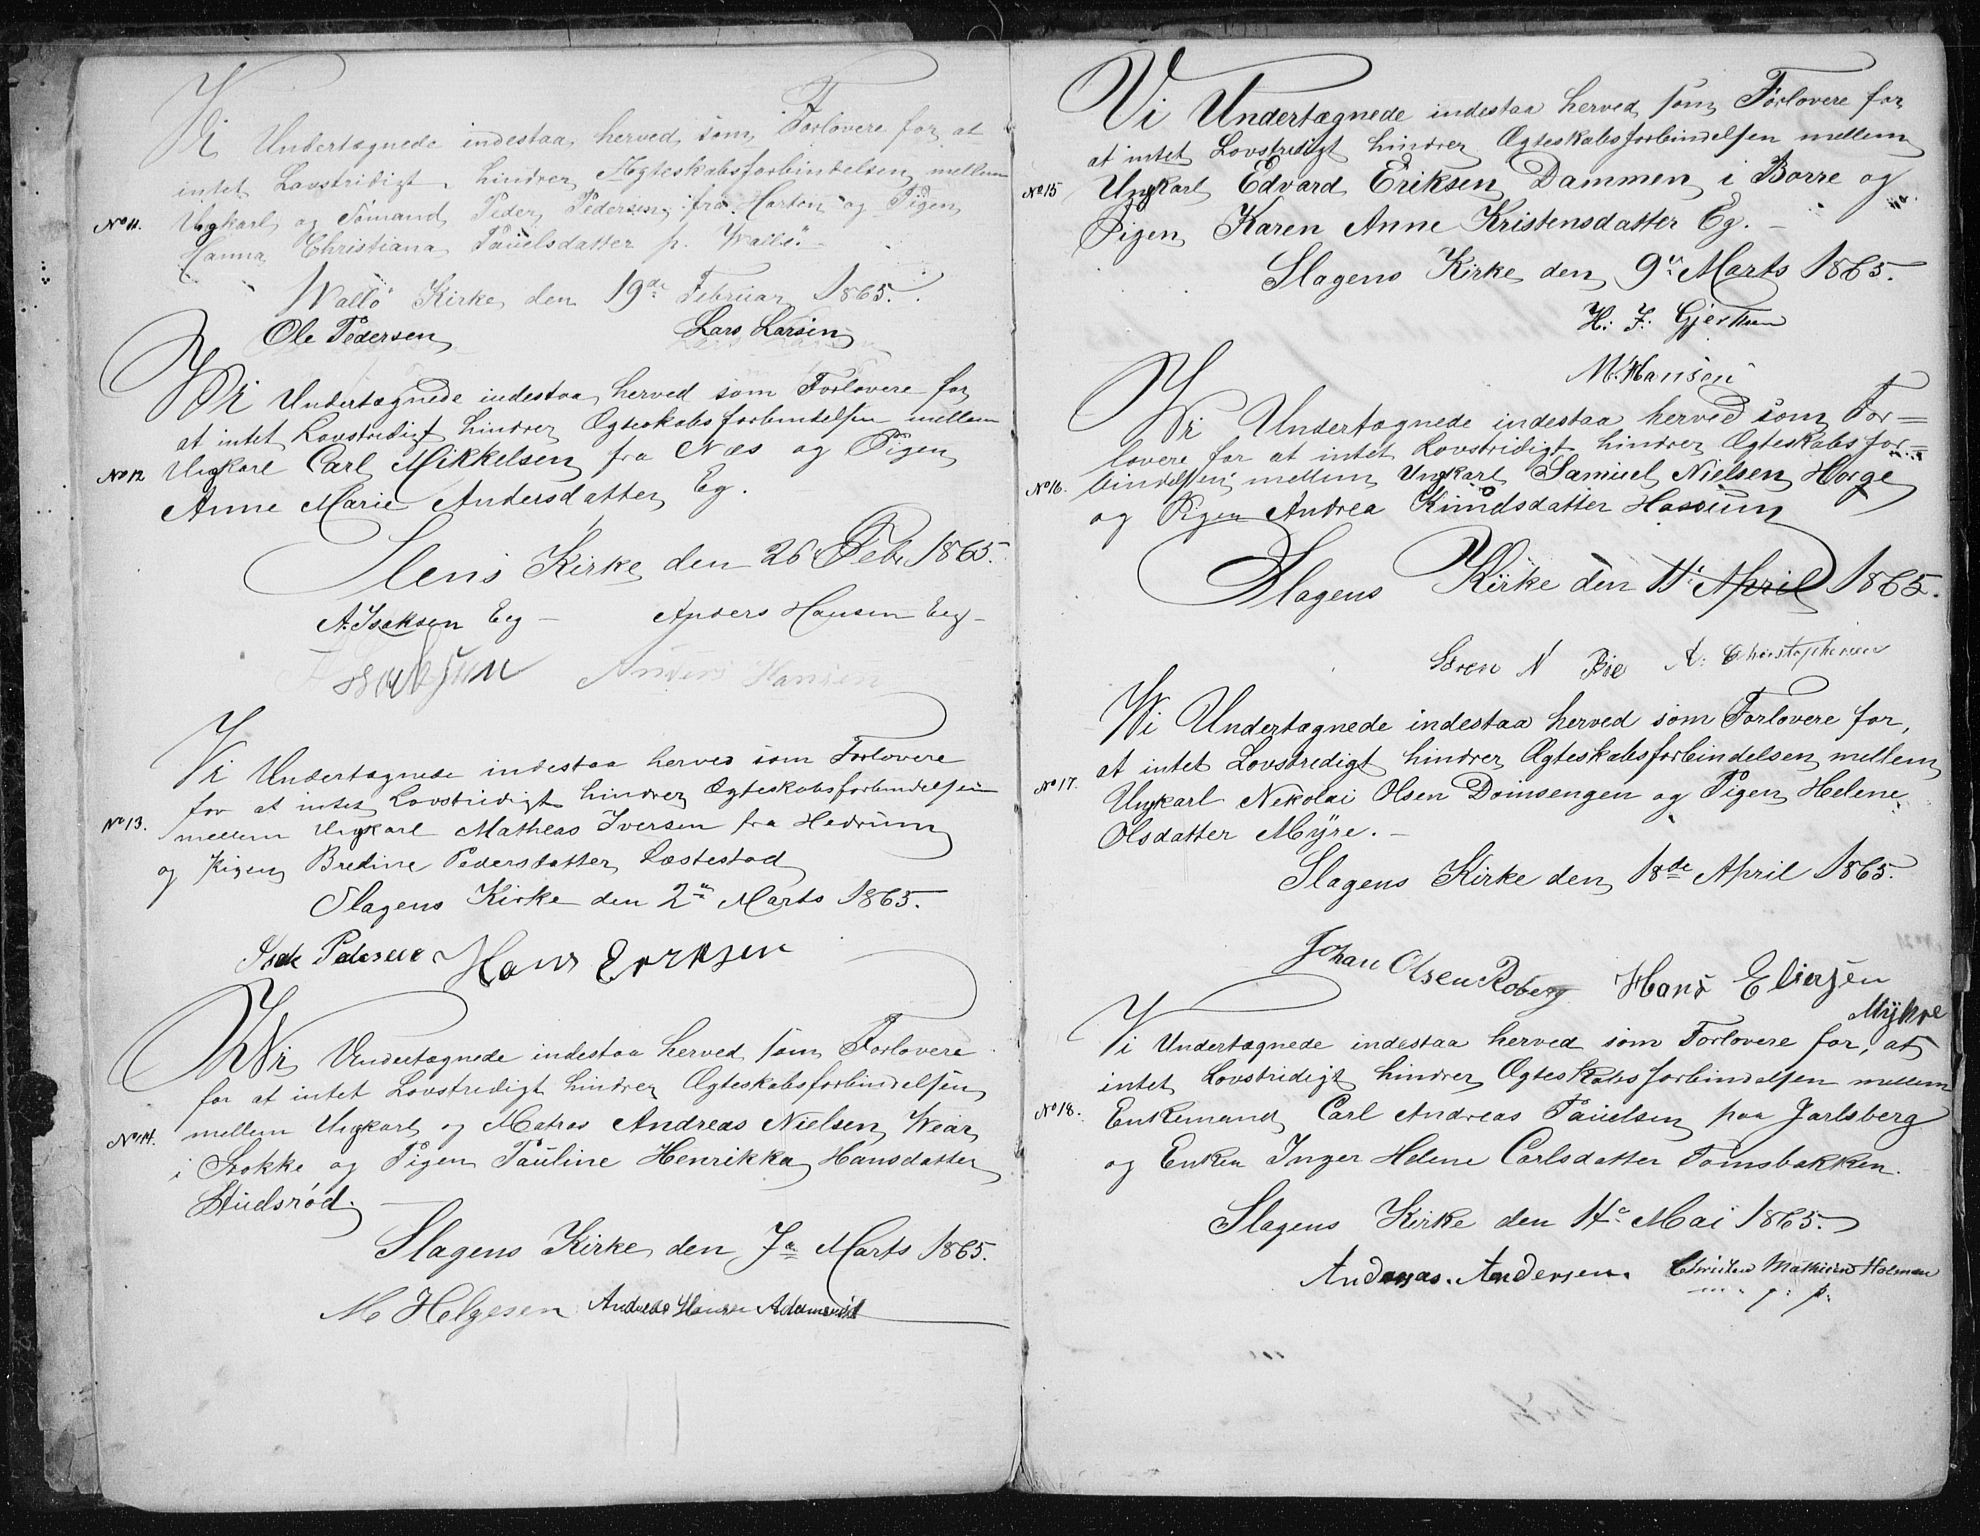 Wi Undertægnede indestaa herved som Forlovere for at
intet Lovstridigt hindrer Ægteskabsforbindelsen mellem
No 11. Ungkarl og Sömand Peder Pedersen fra Horten og Pigen
Hanna Christiana Pauelsdatter p. Wallö.
Wallö Kirke den 19de Februar 1865.
Ole Pedersen Lars Larsen
Wi Undertægnede indestaa herved som Forlovere for
at intet Lovstridigt hindrer Ægteskabsforbindelsen mellem
No 12 Ungkarl Carl Mikkelsen fra Næs og Pigen
Anne Marie Andersdatter Eg.
Slens Kirke den 26 Feb. 1865.
A. Isaksen Eeg – Anders Hansen Eeg –
Isaksen Anders Hansen
Wi Undertægnede indestaa herved som Forlovere
for at intet Lovstridigt hindrer Ægteskabsforbindelsen
No 13. mellem Ungkarl Matheas Iversen fra Hedrum
og Pigen Bredine Pedersdatter Læstestad
Slagens Kirke den 2n Marts 1865.
Isak Pedersen Hans Erksen
Wi Undertægnede indestaa herved som Forlovere
for at intet Lovstredigt hindrer Ægteskabsforbindelsen
No 14. mellem Ungkarl og Matros Andreas Nielsen Wear
i Stokke og Pigen Pauline Henrikka Hansdatter
Studsrød. –
Slagens Kirke den 7a Marts 1865.
M Helgesen Andreas Hansen Adamsröd
Vi Undertægnede indestaa herved som Forlovere for
at intet Lovstridigt hindrer Ægteskabsforbindelsen mellem
No 15 Ungkarl Edvard Eriksen Dammen i Borre og
Pigen Karen Anne Kristensdatter Eg. –
Slagens Kirke den 9n Marts 1865.
H. J. Gjertsen
M. Hansen
Wi Undertægnede indestaa herved som For=
lovere for at intet Lovstridigt hindrer Ægteskabsfor=
No 16. bindelsen mellem Ungkarl Samuel Nielsen Horge
og Pigen Andrea Knudsdatter Hassum
Slagens Kirke den 11' April 1865.
Sören N Bie A. Christophersen
Wi Undertægnede indestaa herved som Forlovere for,
at intet Lovstredigt hindrer Ægteskabsforbindelsen mellem
No 17. Ungkarl Nekolai Olsen Domsengen og Pigen Helene
Olsdatter Myre. –
Slagens Kirke den 18de April 1865.
Johan Olsen Roberg Hans Eliersen
Mykre
Vi Undertægnede indestaa herved som Forlovere for, at
intet Lovstridigt hindrer Ægteskabsforbindelsen mellem
No 18. Enkemand Carl Andreas Pauelsen paa Jarlsberg
og Enken Inger Helene Carlsdatter Tomsbakken.
Slagens Kirke den 14e Mai 1865.
Andreas. Andersen. Christen Mathisen Holmen
m. p. p.